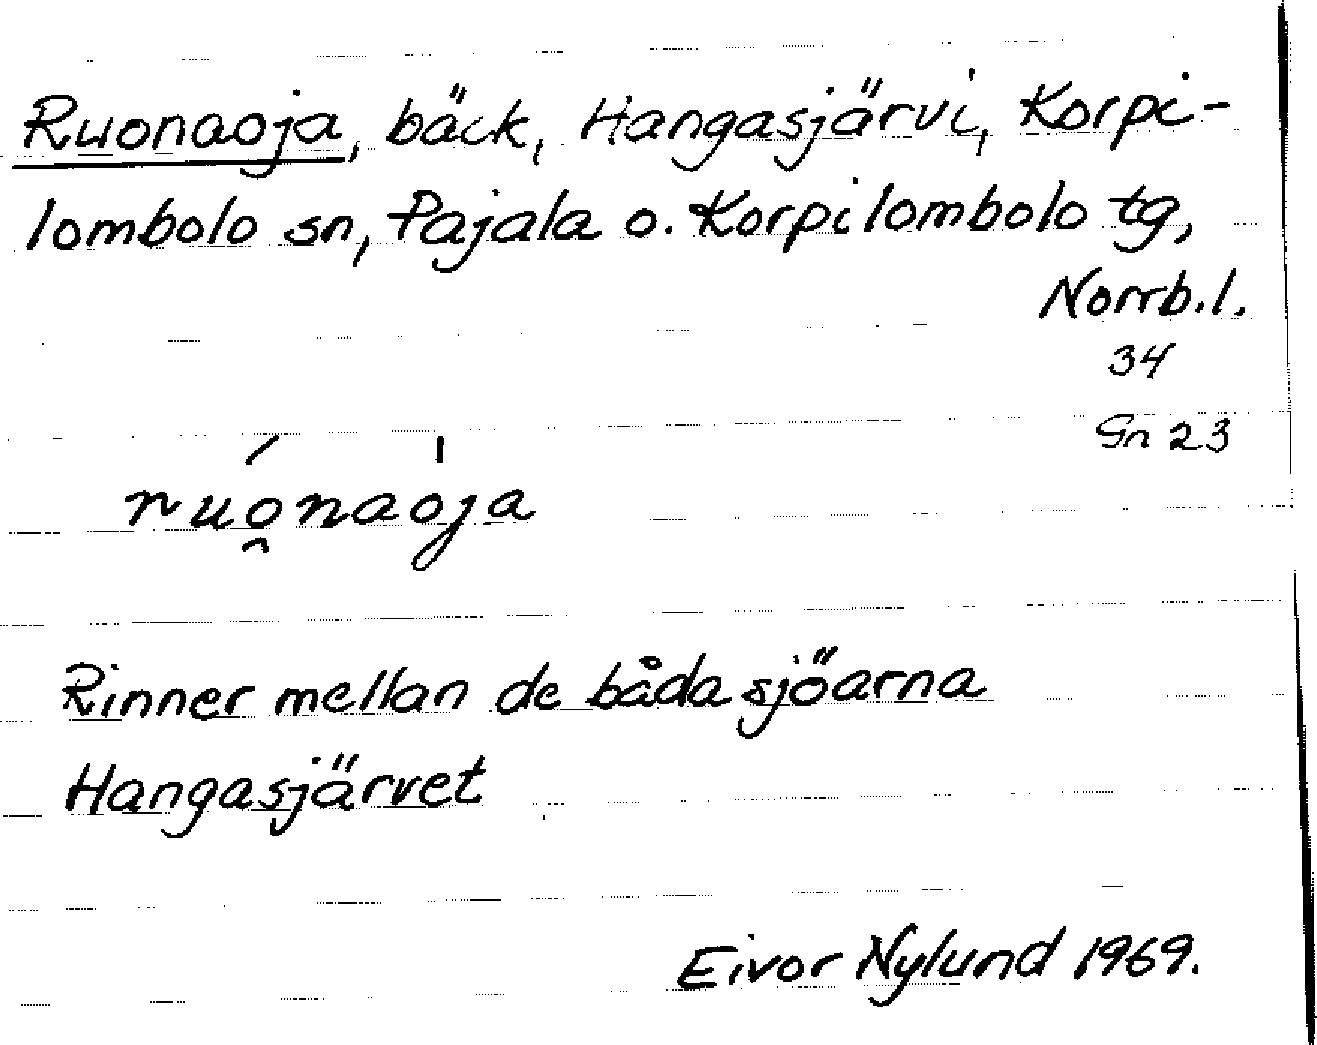 Ruonaoja, bäck, Hangasjärvi, Korpi-
lombolo sn, Pajala o. Korpilombolo tg,
Norrb.l.
34
Gn 23
ruo̯naoja
Rinner mellan de båda sjöarna
Hangasjärvet
Eivor Nylund 1969.